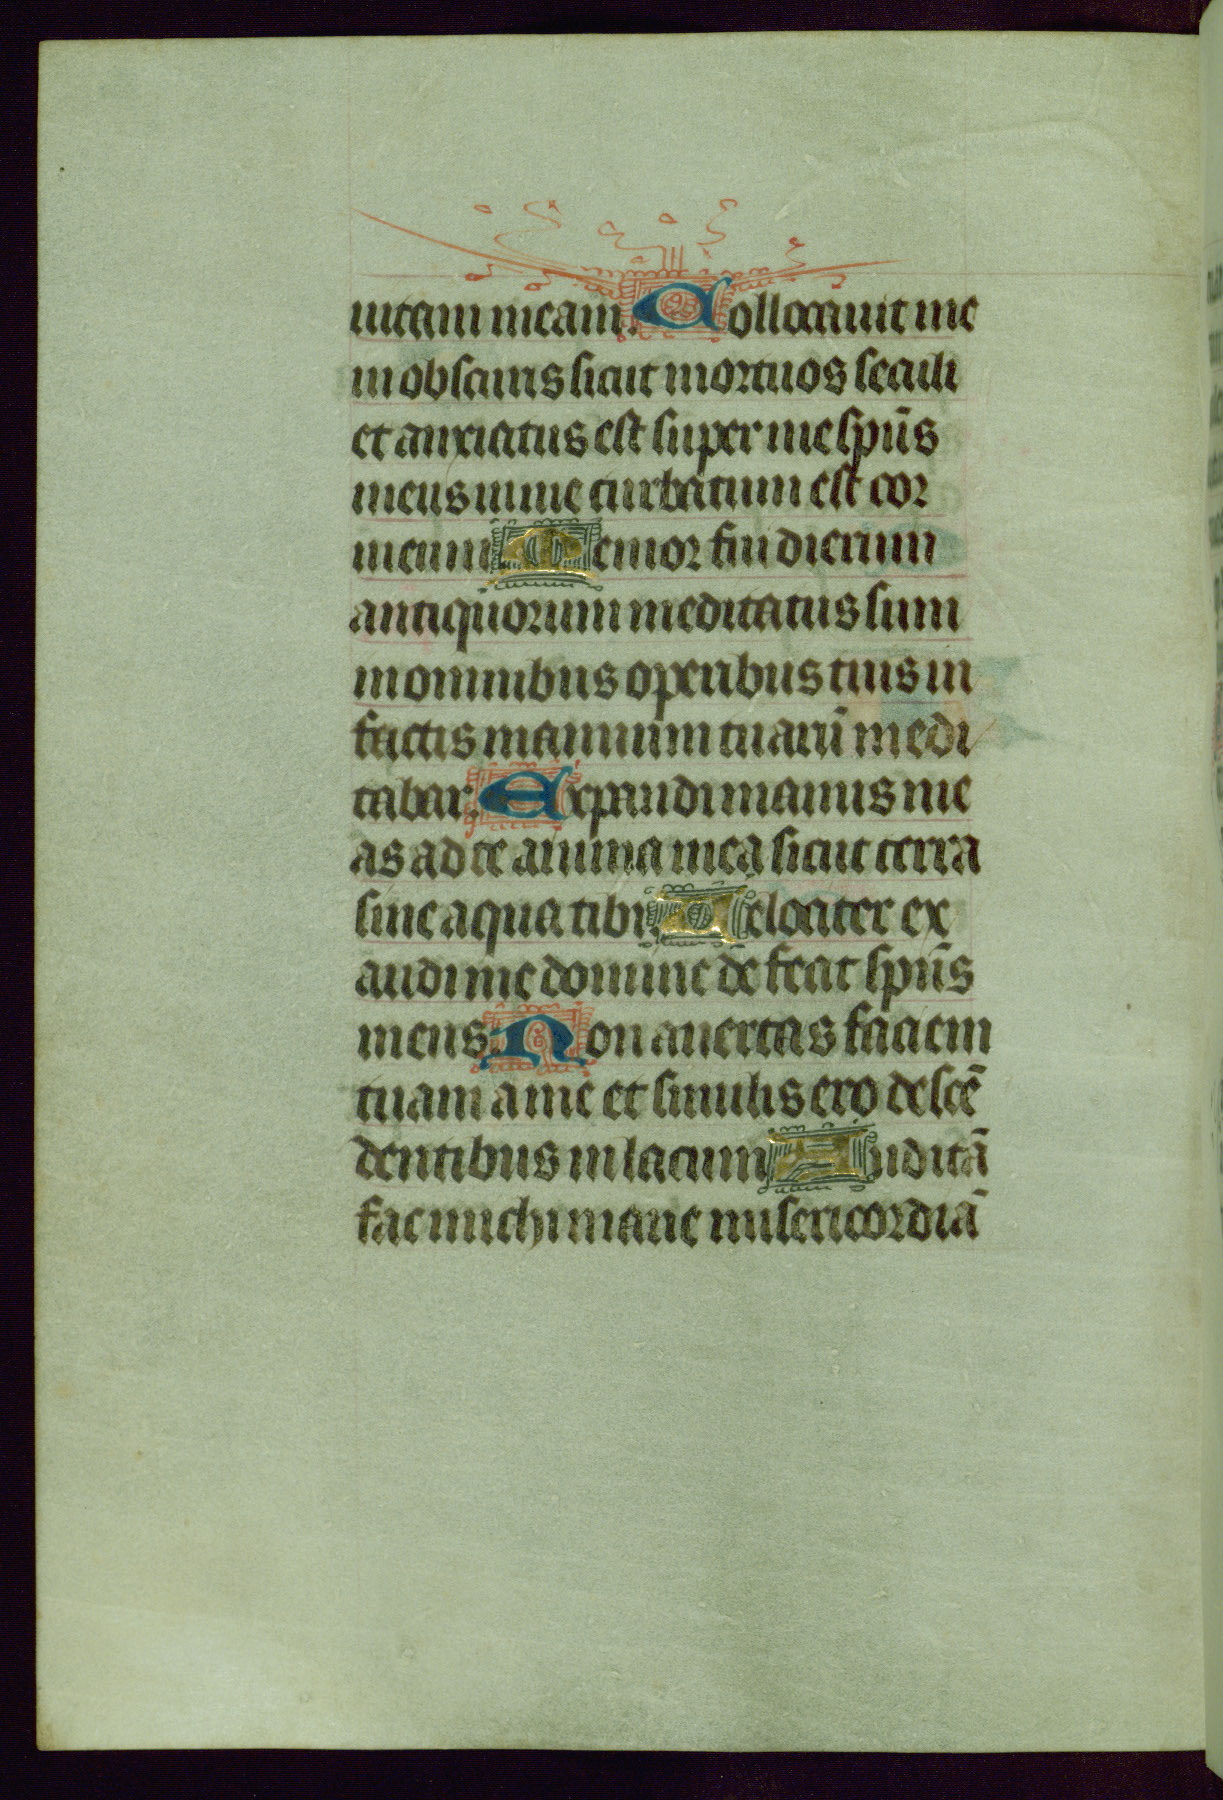 uitam meam. Collocauit me
in obscuris sicut mortuos seculi
et anxiatus est super me sp̄us
meus in me turbatum est cor
meum. Memor fui dierum
antiquorum meditatus sum
in omnibus operibus tuis in
factis manuum tuarū medi
tabar. Expandi manus me
as ad te anima mea sicut terra
sine aqua tibi. Uelociter ex
audi me domine defecit sp̄us
meus. Non auertas faciem
tuam a me et similis ero descē
dentibus in lacum. Auditā
fac michi mane misericordiā